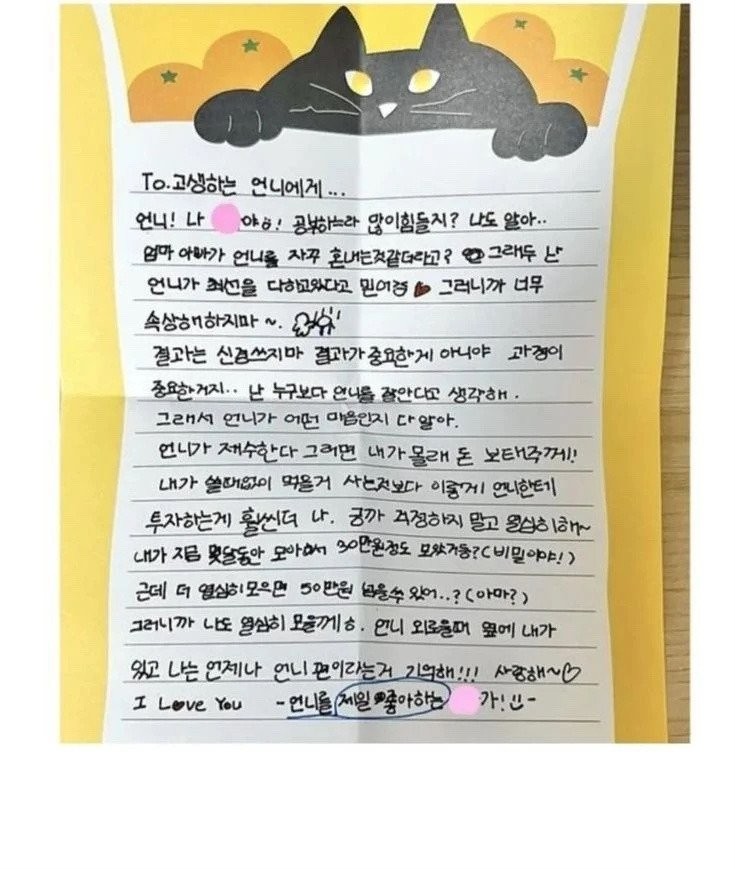 To.고생하는 언니에게...
언니! 나 야ㅎ! 공부하느라 많이힘들지? 나도 알아..
엄마 아빠가 언니를 자꾸 혼내는것같더라고? 그래두 난
언니가 최선을 다하고있다고 믿어정 그러니까 너무
속상해하지마~.
결과는 신경쓰지마 결과가 중요한게 아니야 과정이
중요한거지.. 난 누구보다 언니를 잘안다고 생각해.
그래서 언니가 어떤 마음인지 다 알아.
언니가 재수한다 그러면 내가 몰래 돈 보태주께!!
내가 쓸때없이 먹을거 사는것보다 이렇게 언니한테
투자하는게 훨씬더 나. 긍까 걱정하지 말고 열심히해~
내가 지금 몇달동안 모아서 30만원정도 모았거등?(비밀이야!)
근데 더 열심히모으면 50만원 넘을수 있어..?(아마?)
그러니까 나도 열심히 모을께ㅎ. 언니 외로울때 옆에 내가
있고 나는 언제나 언니 편이라는거 기억해!!! 사랑해~♡
I Love You -언니를 제일 좋아하는 가!!-